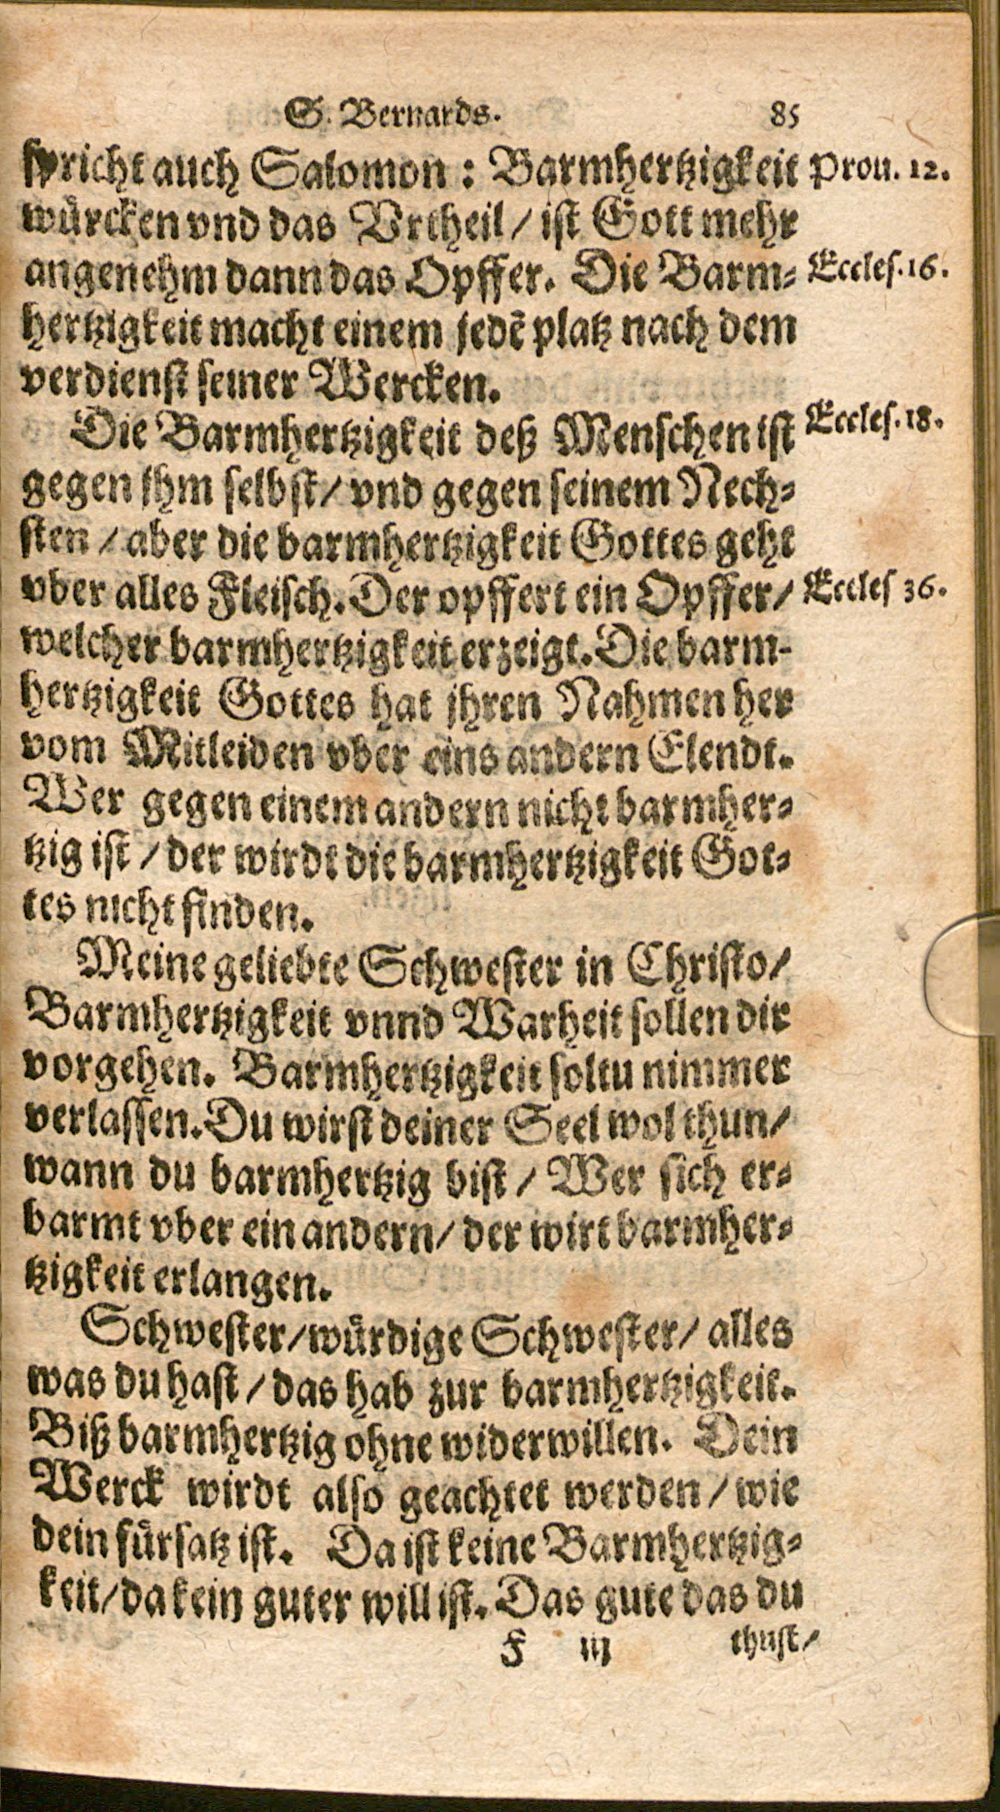 S. Bernards. 85
spricht auch Salomon : Barmhertzigkeit Prou. 12.
würcken vnd das Vrtheil / ist Gott mehr
angenehm dann das Opffer. Die Barm- Eccles. 16.
hertzigkeit macht einem jedē platz nach dem
verdienst seiner Wercken.
Die Barmhertzigkeit deß Menschen ist Eccles. 18.
gegen jhm selbst / vnd gegen seinem Nech-
sten / aber die barmhertzigkeit Gottes geht
vber alles Fleisch. Der opffert ein Opffer / Eccles 36.
welcher barmhertzigkeit erzeigt. Die barm-
hertzigkeit Gottes hat jhren Nahmen her
vom Mitleiden vber eins andern Elendt.
Wer gegen einem andern nicht barmher-
tzig ist / der wirdt die barmhertzigkeit Got-
tes nicht finden.
Meine geliebte Schwester in Christo /
Barmhertzigkeit vnnd Warheit sollen dir
vorgehen. Barmhertzigkeit soltu nimmer
verlassen. Du wirst deiner Seel wol thun /
wann du barmhertzig bist / Wer sich er-
barmt vber ein andern / der wirt barmher-
tzigkeit erlangen.
Schwester / würdige Schwester / alles
was du hast / das hab zur barmhertzigkeit.
Biß barmhertzig ohne widerwillen. Dein
Werck wirdt also geachtet werden / wie
dein fürsatz ist. Da ist keine Barmhertzig-
keit / da kein guter will ist. Das gute das du
F iij thust /